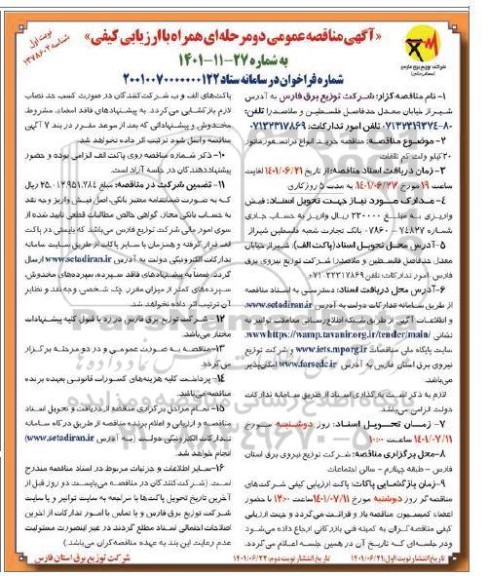 نوبت اول
شناسه ۱۳۷۸۶۰۲
«آگهی مناقصه عمومی دو مرحله‌ای همراه با ارزیابی کیفی»
به شماره ۲۷-۱۱-۱۴۰۱
شماره فراخوان در سامانه ستاد ۲۰۰۱۰۰۷۰۰۰۰۰۰۱۲۲
شرکت توزیع برق فارس
۱- نام مناقصه گزار: شرکت توزیع برق فارس به آدرس
شیراز خیابان معدل حدفاصل فلسطین و ملاصدرا تلفن:
تلفن امور تدارکات: ۰۷۱۳۲۳۱۷۸۶۹
۲- موضوع مناقصه: مناقصه خرید انواع ترانسفورماتور
۲۰ کیلو ولت کم تلفات
۳- زمان دریافت اسناد مناقصه: از تاریخ ۱۴۰۱/۰۶/۲۱ لغایت
ساعت ۱۹ مورخ ۱۴۰۱/۰۶/۲۷ به مدت ۵ روز کاری
۴- مدارک مورد نیاز جهت تحویل اسناد: فیش
واریزی به مبلغ ۲۳۰۰۰۰ ریال واریز به حساب جاری
شماره ۷۴۸۲۷-۰۷۸۶۰ بانک تجارت شعبه فلسطین شیراز
۵- آدرس محل تحویل اسناد (پاکت الف): شیراز خیابان
معدل حدفاصل فلسطین و ملاصدرا شرکت توزیع نیروی برق
فارس- امور تدارکات؛ تلفن ۳۲۳۱۷۸۶۹-۰۷۱
۶- آدرس محل دریافت اسناد: دسترسی به اسناد مناقصه
از طریق سامانه تدارکات دولت به آدرس www.setadiran.ir
و اطلاعات آگهی از طریق شبکه اطلاع رسانی معاملات توانیر به
نشانی https://wamp.tavanir.org.ir/tender/main/ و
سایت پایگاه ملی مناقصات www.iets.mporg.ir و شرکت توزیع
نیروی برق استان فارس به آدرس www.farsedc.ir امکان‌پذیر
می‌باشد.
لازم به ذکر است بارگذاری اسناد از طریق سامانه تدارکات
دولت الزامی می‌باشد.
۷- زمان تحویل اسناد: روز دوشنبه مورخ
۱۴۰۱/۰۷/۱۱ ساعت ۱۰:۰۰
۸- محل برگزاری مناقصه: شرکت توزیع نیروی برق استان
فارس – طبقه چهارم – سالن اجتماعات
۹- زمان بازگشایی پاکات: پاکت ارزیابی کیفی شرکت‌های
مناقصه‌گر روز دوشنبه مورخ ۱۴۰۱/۰۷/۱۱ ساعت ۱۳:۰۰ با حضور
اعضاء کمیسیون مناقصه باز و قرائت می‌گردد و جهت ارزیابی
کیفی مناقصه‌گران به کمیته فنی بازرگانی ارجاع داده می‌شود
و در جلسه‌ای که تاریخ آن در همین جلسه اعلام می‌گردد.
پاکت‌های الف و ب شرکت‌کنندگان در صورت کسب حد نصاب
لازم بازگشایی می‌گردد. به پیشنهادهای فاقد امضاء، مشروط،
مخدوش و پیشنهاداتی که بعد از موعد مقرر در بند ۷ آگهی
مناقصه واصل شود ترتیب اثر داده نخواهد شد.
۱۰- ذکر شماره مناقصه روی پاکت الف الزامی بوده و حضور
پیشنهاددهندگان در جلسه آزاد است.
۱۱- تضمین شرکت در مناقصه: مبلغ ۲۵،۰۱۲،۹۵۱،۲۸۴ ریال
که به صورت ضمانتنامه معتبر بانکی، اصل فیش واریز وجه نقد
به حساب بانکی مجاز، گواهی خالص مطالبات قطعی تایید شده از
سوی امور مالی شرکت توزیع فارس می‌باشد که بایستی در پاکت
الف قرار گرفته و همزمان با سایر پاکات از طریق سایت سامانه
تدارکات الکترونیکی دولت به آدرس www.setadiran.ir ارسال
گردد. ضمنا به پیشنهادهای فاقد سپرده، سپرده‌های مخدوش،
سپرده‌های کمتر از میزان مقرر، چک شخصی و نظایر
آن ترتیب اثر داده نخواهد شد.
۱۲- شرکت توزیع برق فارس در رد یا قبول کلیه پیشنهادات
مختار می‌باشد.
۱۳- مناقصه به صورت عمومی و در دو مرحله برگزار
می گردد.
۱۴- پرداخت کلیه هزینه‌های کسورات قانونی بعهده برنده
مناقصه می‌باشد.
۱۵- تمام مراحل برگزاری مناقصه از دریافت و تحویل اسناد
مناقصه و ارزیابی و اعلام برنده مناقصه از طریق درگاه سامانه
تدارکات الکترونیکی دولت (به آدرس www.setadiran.ir)
انجام خواهد شد.
۱۶- سایر اطلاعات و جزئیات مربوط در اسناد مناقصه مندرج
است. (شرکت کنندگان در مناقصه می‌بایست دو روز قبل از
آخرین تاریخ تحویل پاکت‌ها با مراجعه به سایت توانیر و یا سایت
شرکت توزیع برق فارس و یا تماس با امور تدارکات از آخرین
اصلاحات احتمالی اسناد مطلع گردند در غیر اینصورت مسئولیت
عدم رعایت این بند به عهده مناقصه‌گران می‌باشد.)
تاریخ انتشار نوبت اول: ۱۴۰۱/۰۶/۲۱ تاریخ انتشار نوبت دوم: ۱۴۰۱/۰۶/۲۲
شرکت توزیع برق استان فارس